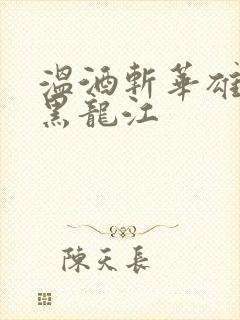 溫酒斬華雄
黑龍江
陳天長